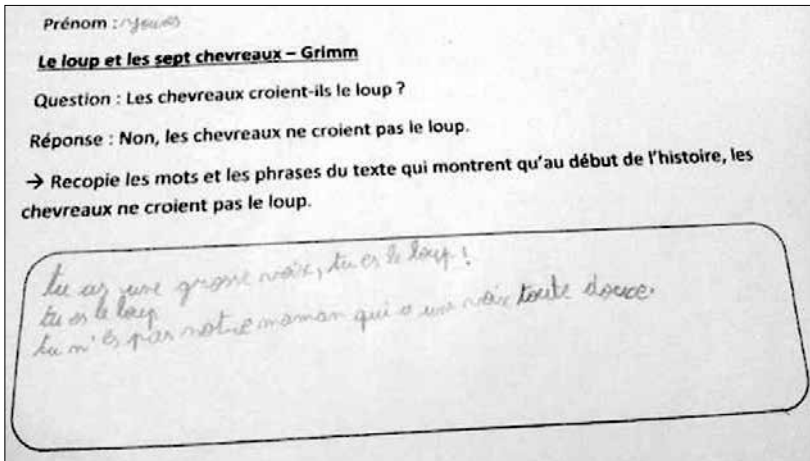 Prénom :
Le loup et les sept chevreaux – Grimm
Question : Les chevreaux croient-ils le loup ?
Réponse : Non, les chevreaux ne croient pas le loup.
→ Recopie les mots et les phrases du texte qui montrent qu'au début de l'histoire, les
chevreaux ne croient pas le loup.
tu as une grosse voix, tu es le loup !
tu es le loup
tu n'es pas notre maman qui a une voix toute douce.